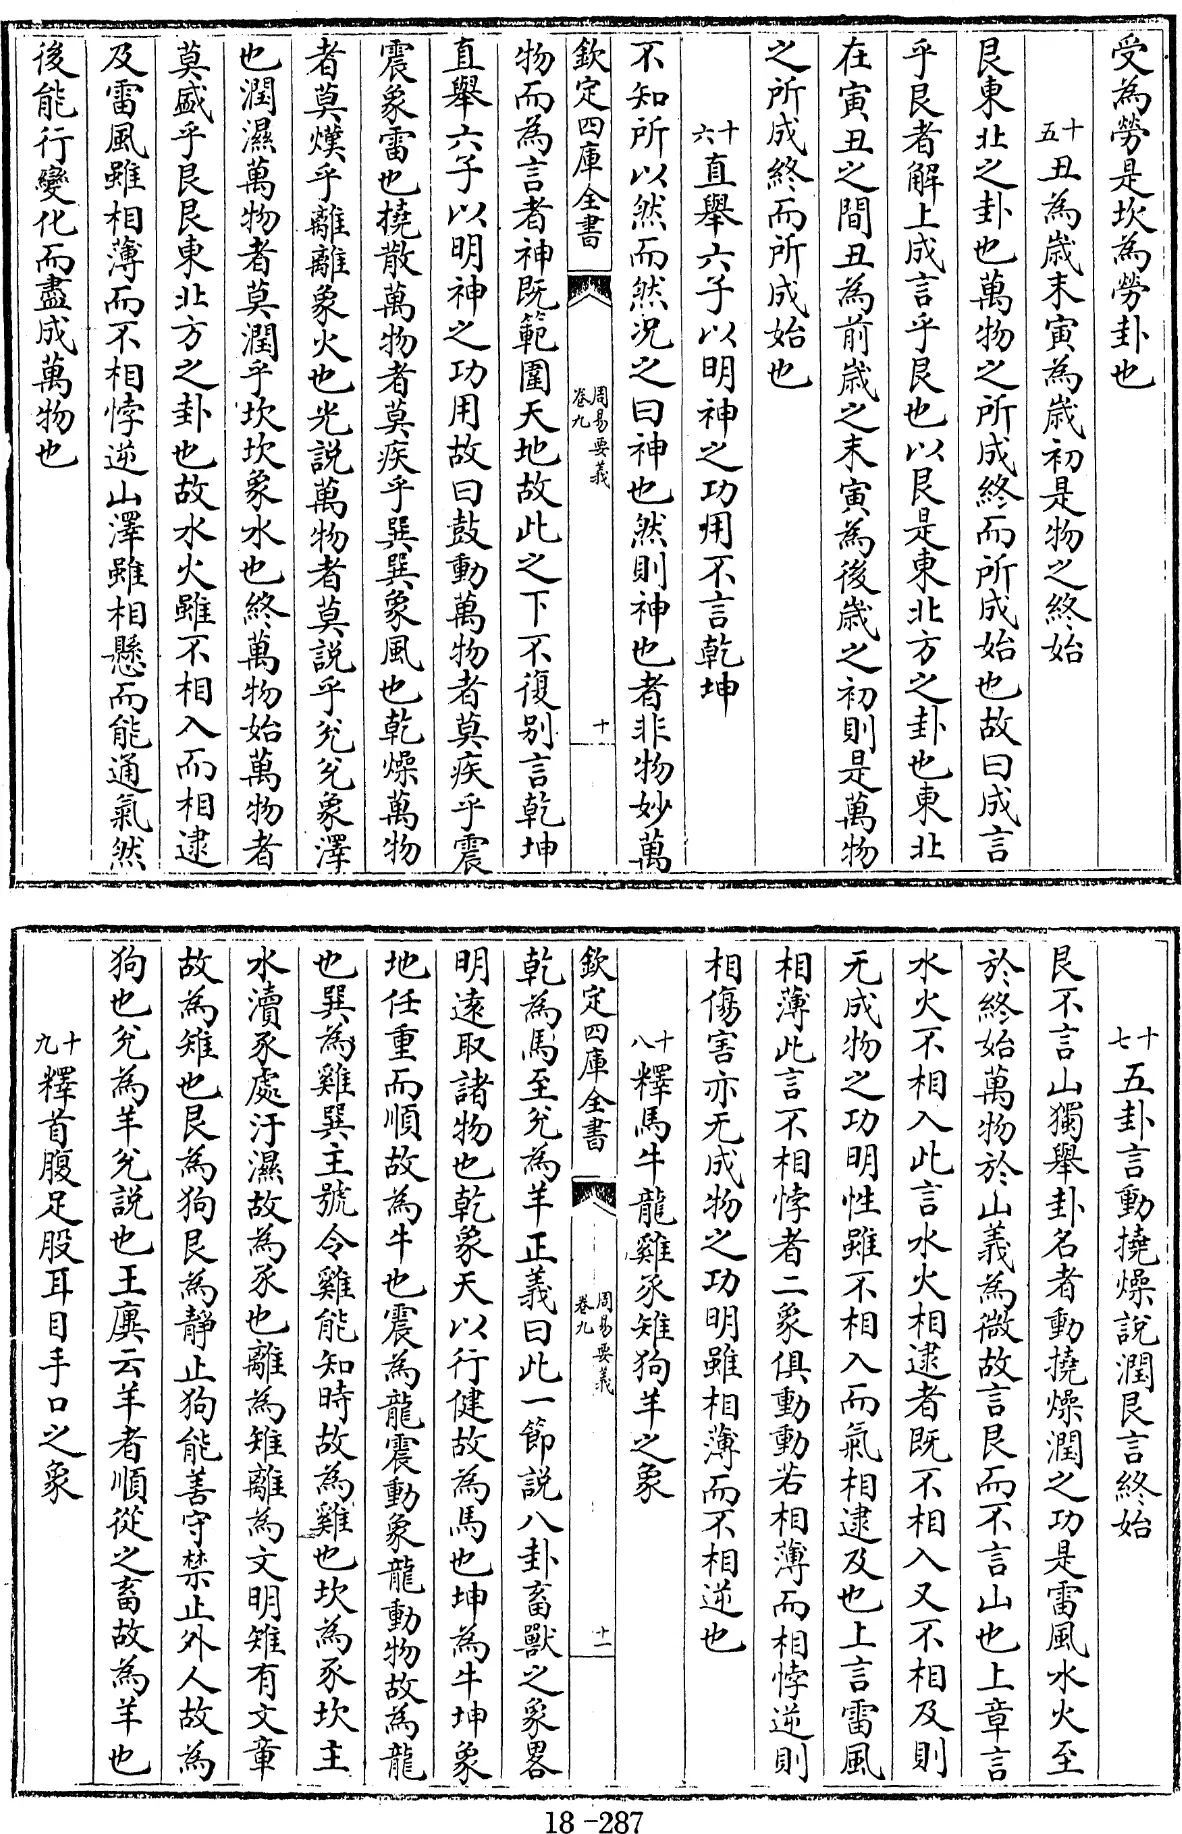 受為勞是坎為勞卦也
十五丑為歲末寅為歲初是物之終始
艮東北之卦也萬物之所成終而所成始也故曰成言
乎艮者解上成言乎艮也以艮是東北方之卦也東北
在寅丑之間丑為前歲之末寅為後歲之初則是萬物
之所成終而所成始也
十六直舉六子以明神之功用不言乾坤
不知所以然而然況之曰神也然則神也者非物妙萬
欽定四庫全書
周易要義
卷九
十
物而為言者神既範圍天地故此之下不復別言乾坤
直舉六子以明神之功用故曰鼓動萬物者莫疾乎震
震象雷也橈散萬物者莫疾乎巽巽象風也乾燥萬物
者莫熯乎離離象火也光說萬物者莫說乎兊兊象澤
也潤濕萬物者莫潤乎坎坎象水也終萬物始萬物者
莫盛乎艮艮東北方之卦也故水火雖不相入而相逮
及雷風雖相薄而不相悖逆山澤雖相懸而能通氣然
後能行變化而盡成萬物也
十七五卦言動撓燥說潤艮言終始
艮不言山獨舉卦名者動撓燥潤之功是雷風水火至
於終始萬物於山義為微故言艮而不言山也上章言
水火不相入此言水火相逮者既不相入又不相及則
无成物之功明性雖不相入而氣相逮及也上言雷風
相薄此言不相悖者二象俱動動若相薄而相悖逆則
相傷害亦无成物之功明雖相薄而不相逆也
十八釋馬牛龍雞豕雉狗羊之象
欽定四庫全書
周易要義
卷九
十一
乾為馬至兊為羊正義曰此一節說八卦畜獸之象畧
明遠取諸物也乾象天以行健故為馬也坤為牛坤象
地任重而順故為牛也震為龍震動象龍動物故為龍
也巽為雞巽主號令雞能知時故為雞也坎為豕坎主
水瀆豕處汙濕故為豕也離為雉離為文明雉有文章
故為雉也艮為狗艮為靜止狗能善守禁止外人故為
狗也兊為羊兊說也王廙云羊者順從之畜故為羊也
十九釋首腹足股耳目手口之象
18-287